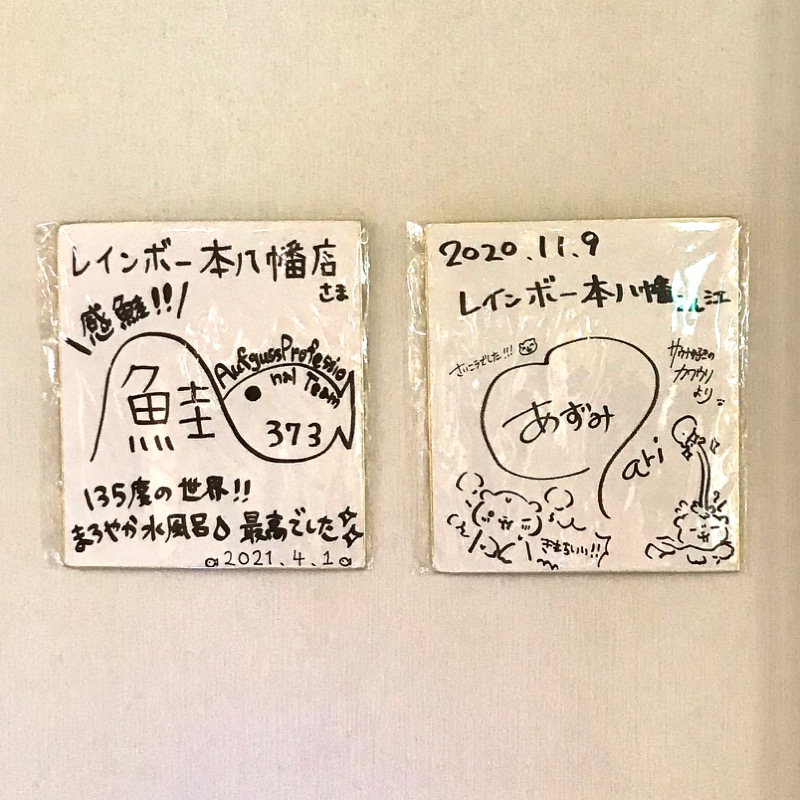 レインボー本八幡店
さま
\感鮭!!/
鮭
AufgussProfessio
nal Team
373
135度の世界!!
まろやか水風呂 最高でした
2021.4.1
2020.11.9
レインボー本八幡
さいこうでした!!!
あずみ
ari
カワウソ
より
きもちいい!!